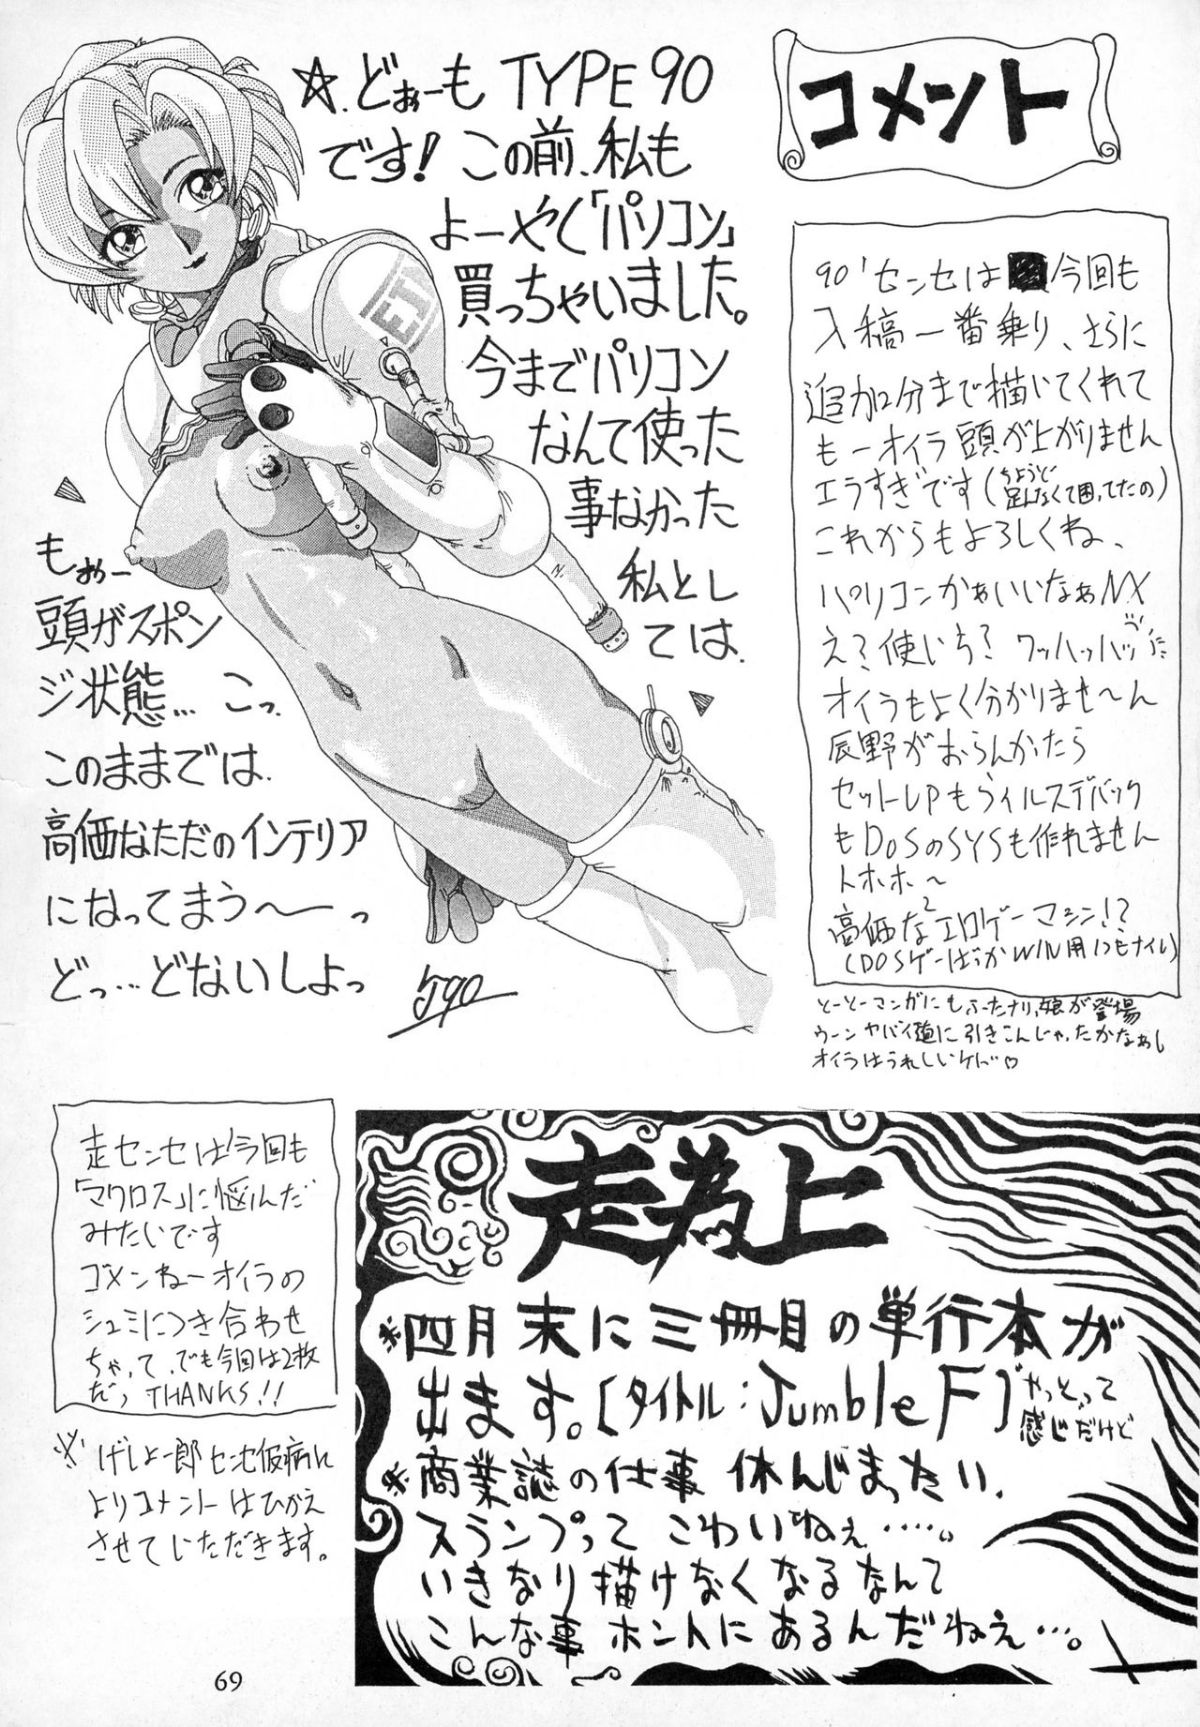 コメント
☆.どぉーも TYPE90
です! この前、私も
よーやく「パソコン」
買っちゃいました。
今までパソコン
なんて使った
事なかった
私とし
ては、
もぉー
頭がスポン
ジ状態… こっ
このままでは
高価なただのインテリア
になってまう〜ーっ
どっ…どないしよっ
T90
EI
90'センセは今回も
入稿一番乗り、さらに
追加2分まで描いてくれて
もーオイラ頭が上がりません
エラすぎです(ちょうど足んなくて困ってたの)
これからもよろしくね、
パソコンかぁいいなぁNX
え?使いち? ワッハッハッ
オイラもよく分かりませ〜ん
辰野がおらんかたら
セットUPもウィルスデバック
もDOSのSYSも作れません
トホホ〜
高価なエロゲーマシン!?
(DOSゲーばっかWIN用1つもナイ)
とーとーマンガにもふーたナリ娘が登場
ウーン ヤバイ道に引きこんじゃったかなぁし
オイラはうれしいケド♡
走センセは今回も
「マクロス」に悩んだ
みたいです
ゴメンねーオイラの
シュミにつき合わせ
ちゃって、でも今回は2枚
だっ THANKS!!
※ げしょ一郎センセ仮病に
よりコメントはひかえ
させていただきます。
走為上
※四月末に三冊目の単行本が
出ます。[タイトル:Jumble F]やっとって感じだけど
※商業誌の仕事 休んじまったい、
スランプって こわいねぇ‥‥。
いきなり描けなくなるなんて
こんな事ホントにあるんだねえ…。
69